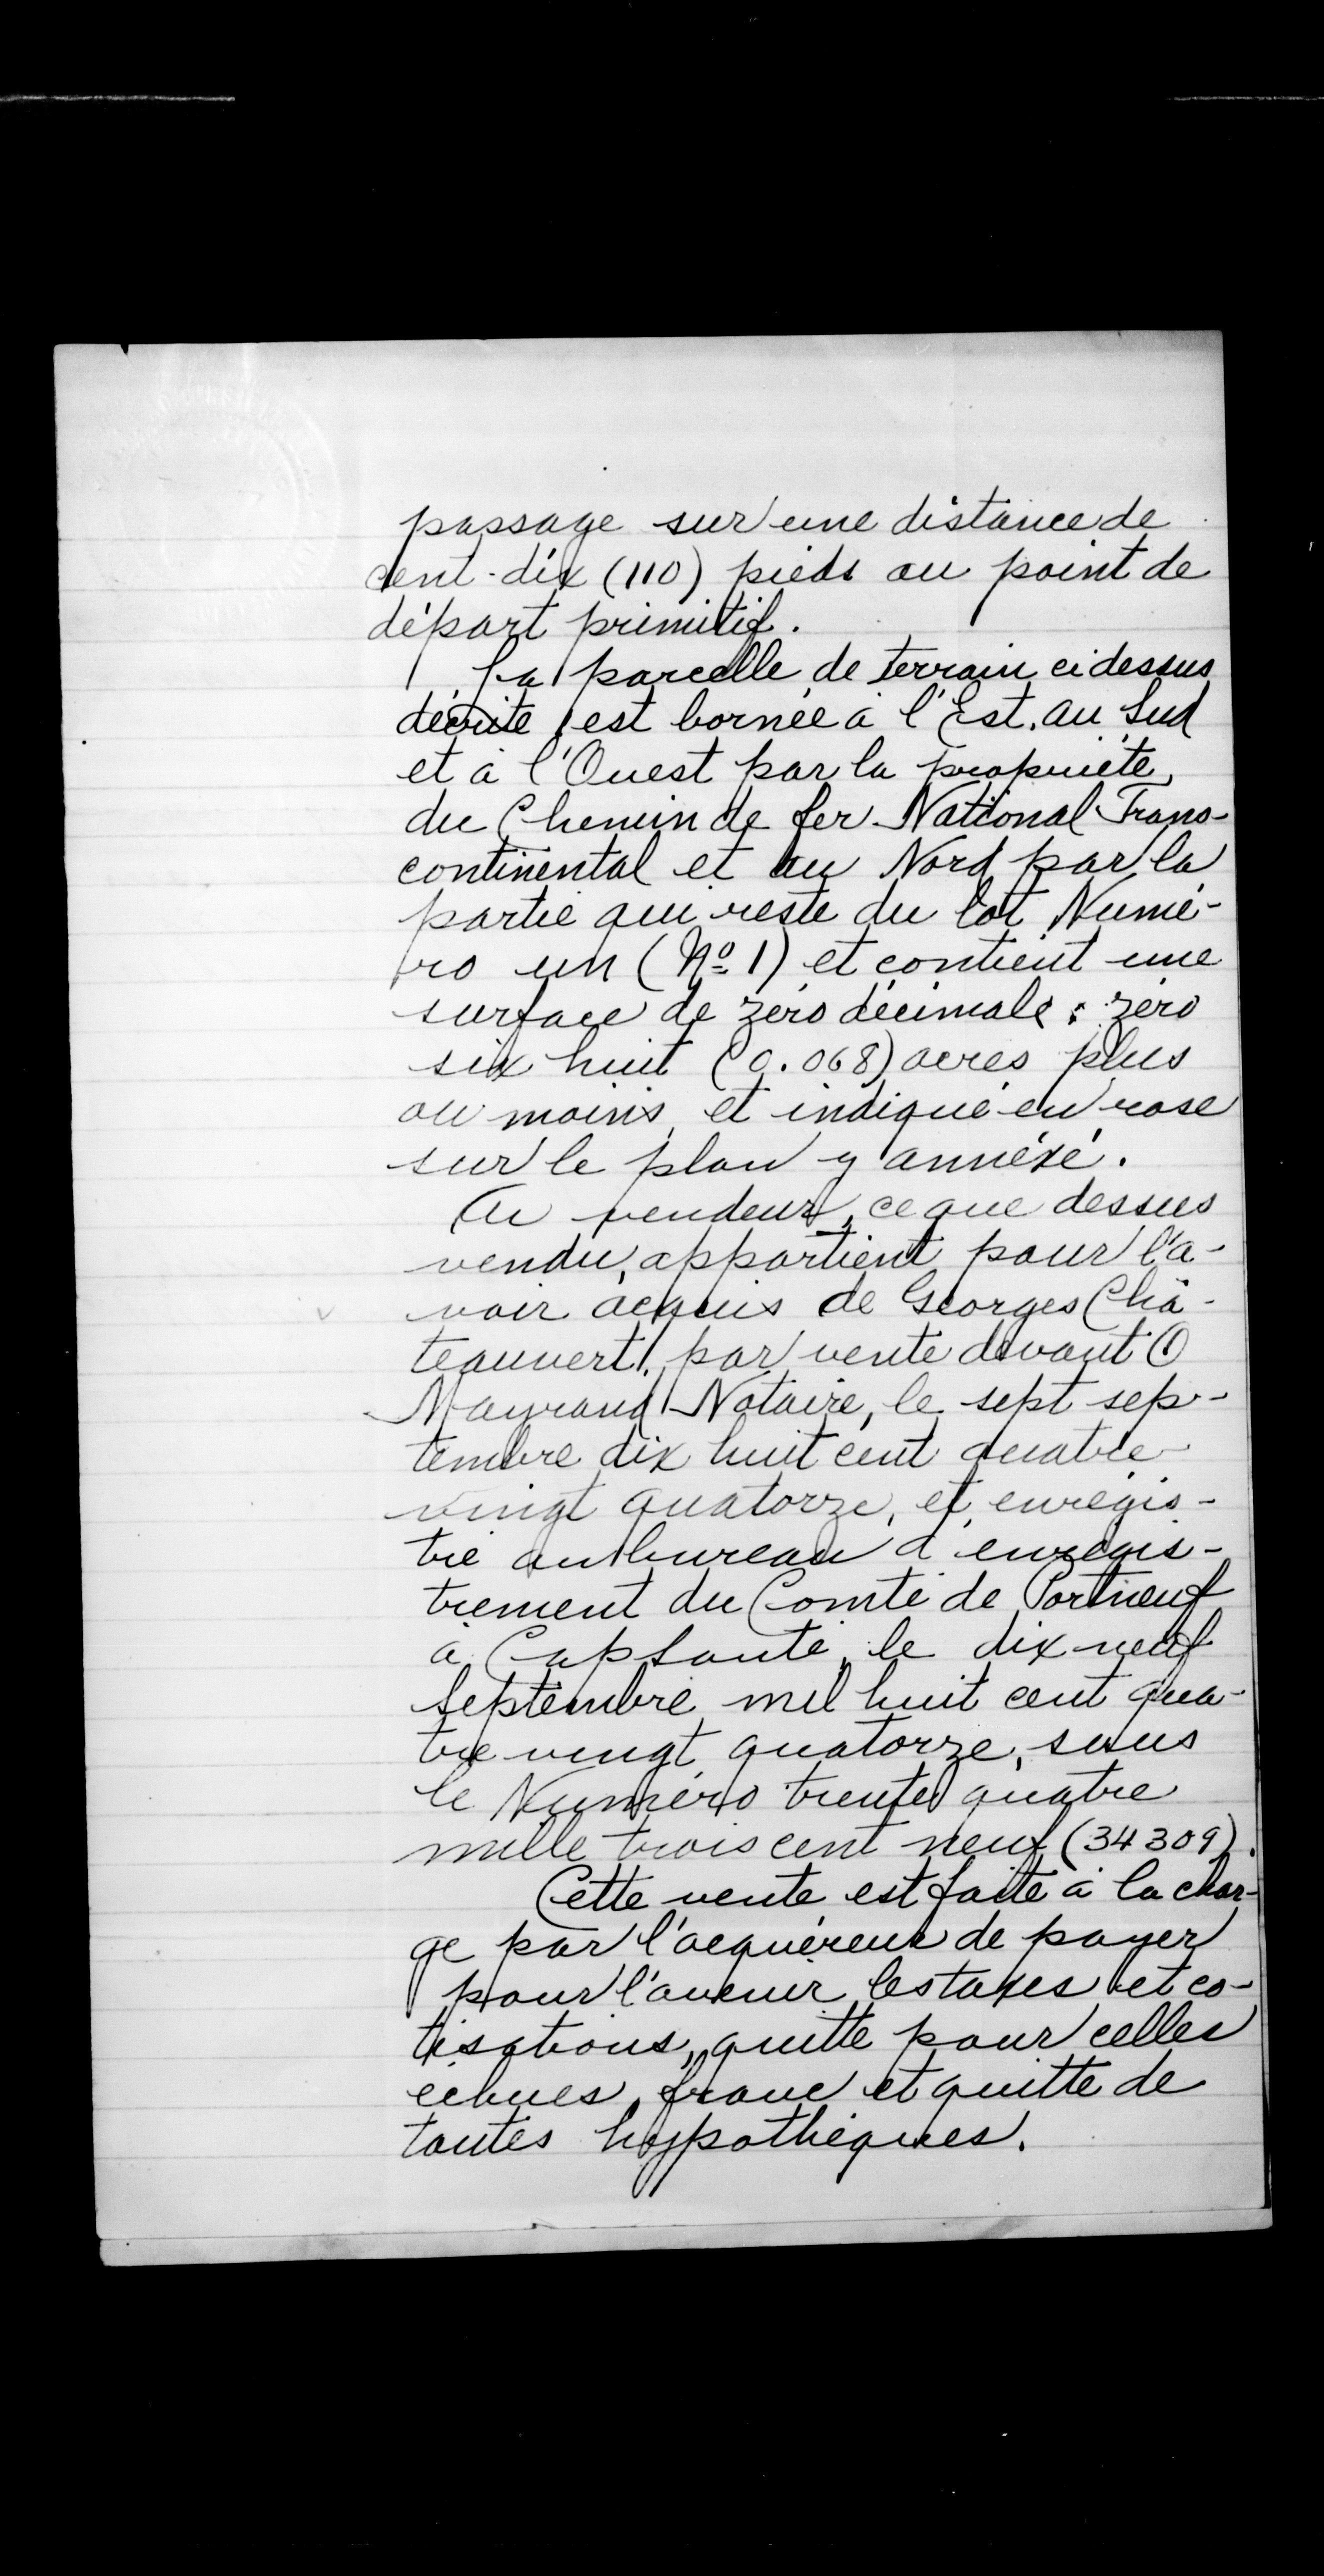 passage sur une distance de
cent-dix (110) pieds au point de
départ primitif.
La parcelle de terrain ci dessus
décrite est bornée à l'Est, au Sud
et à l'Ouest par la propriété
du Chemin de fer National Trans-
continental et au Nord par la
partie qui reste du lot Numé-
ro un (No 1) et contient une
surface de zéro décimale : zéro
six huit (0.068) acres plus
ou moins, et indiqué en rose
sur le plan y annéxé.
Au vendeur, ce que dessus
vendu, appartient pour l'a-
voir acquis de Georges Châ-
teauvert, par vente devant O
Mayrand Notaire, le sept sep-
tembre dix huit cent quatre
vingt quatorze, et enrégis-
tré au bureau d'enrégis-
trement du Comté de Portneuf
à Cap Santé, le dix neuf
Septembre mil huit cent qua-
tre vingt quatorze, sous
le Numéro trente quatre
mille trois cent neuf (34309).
Cette vente est faite à la char-
ge par l'acquéreur de payer
pour l'avenir les taxes et co-
tisations, quitte pour celles
échues, franc et quitte de
toutes hypothèques.